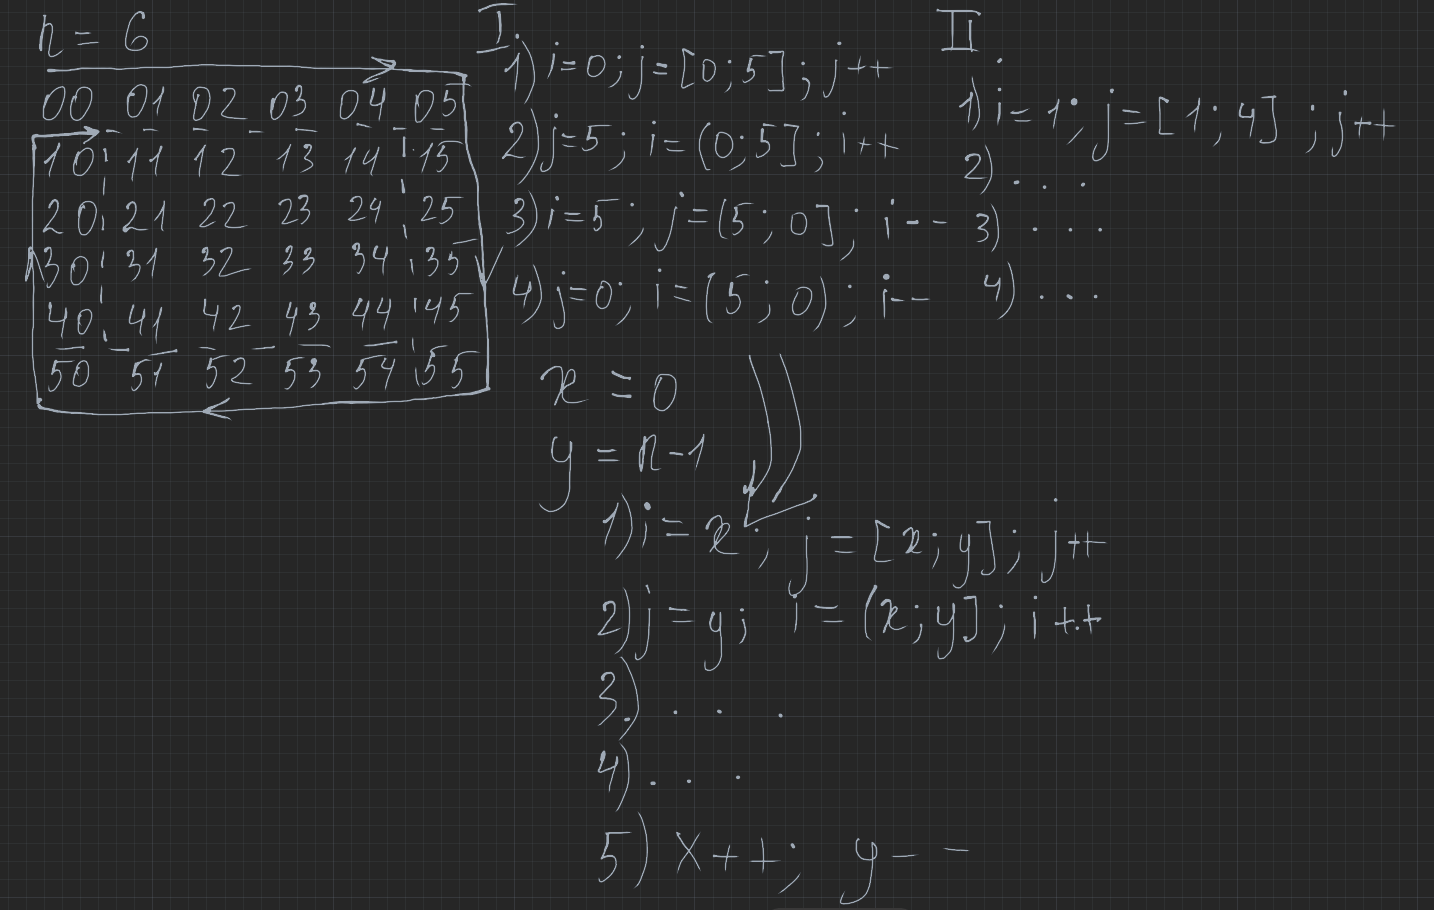 n = 6
00 01 02 03 04 05
10 11 12 13 14 15
20 21 22 23 24 25
30 31 32 33 34 35
40 41 42 43 44 45
50 51 52 53 54 55
I.
1) i=0; j=[0;5]; j++
2) j=5; i=(0;5]; i++
3) i=5; j=(5;0]; i--
4) j=0; i=(5;0); i--
II
1) i=1; j=[1;4]; j++
2) . . .
3) . . .
4) . . .
x = 0
y = n-1
1) i = x; j = [x;y]; j++
2) j = y; i = (x;y]; i++
3) . . .
4) . . .
5) x++; y--